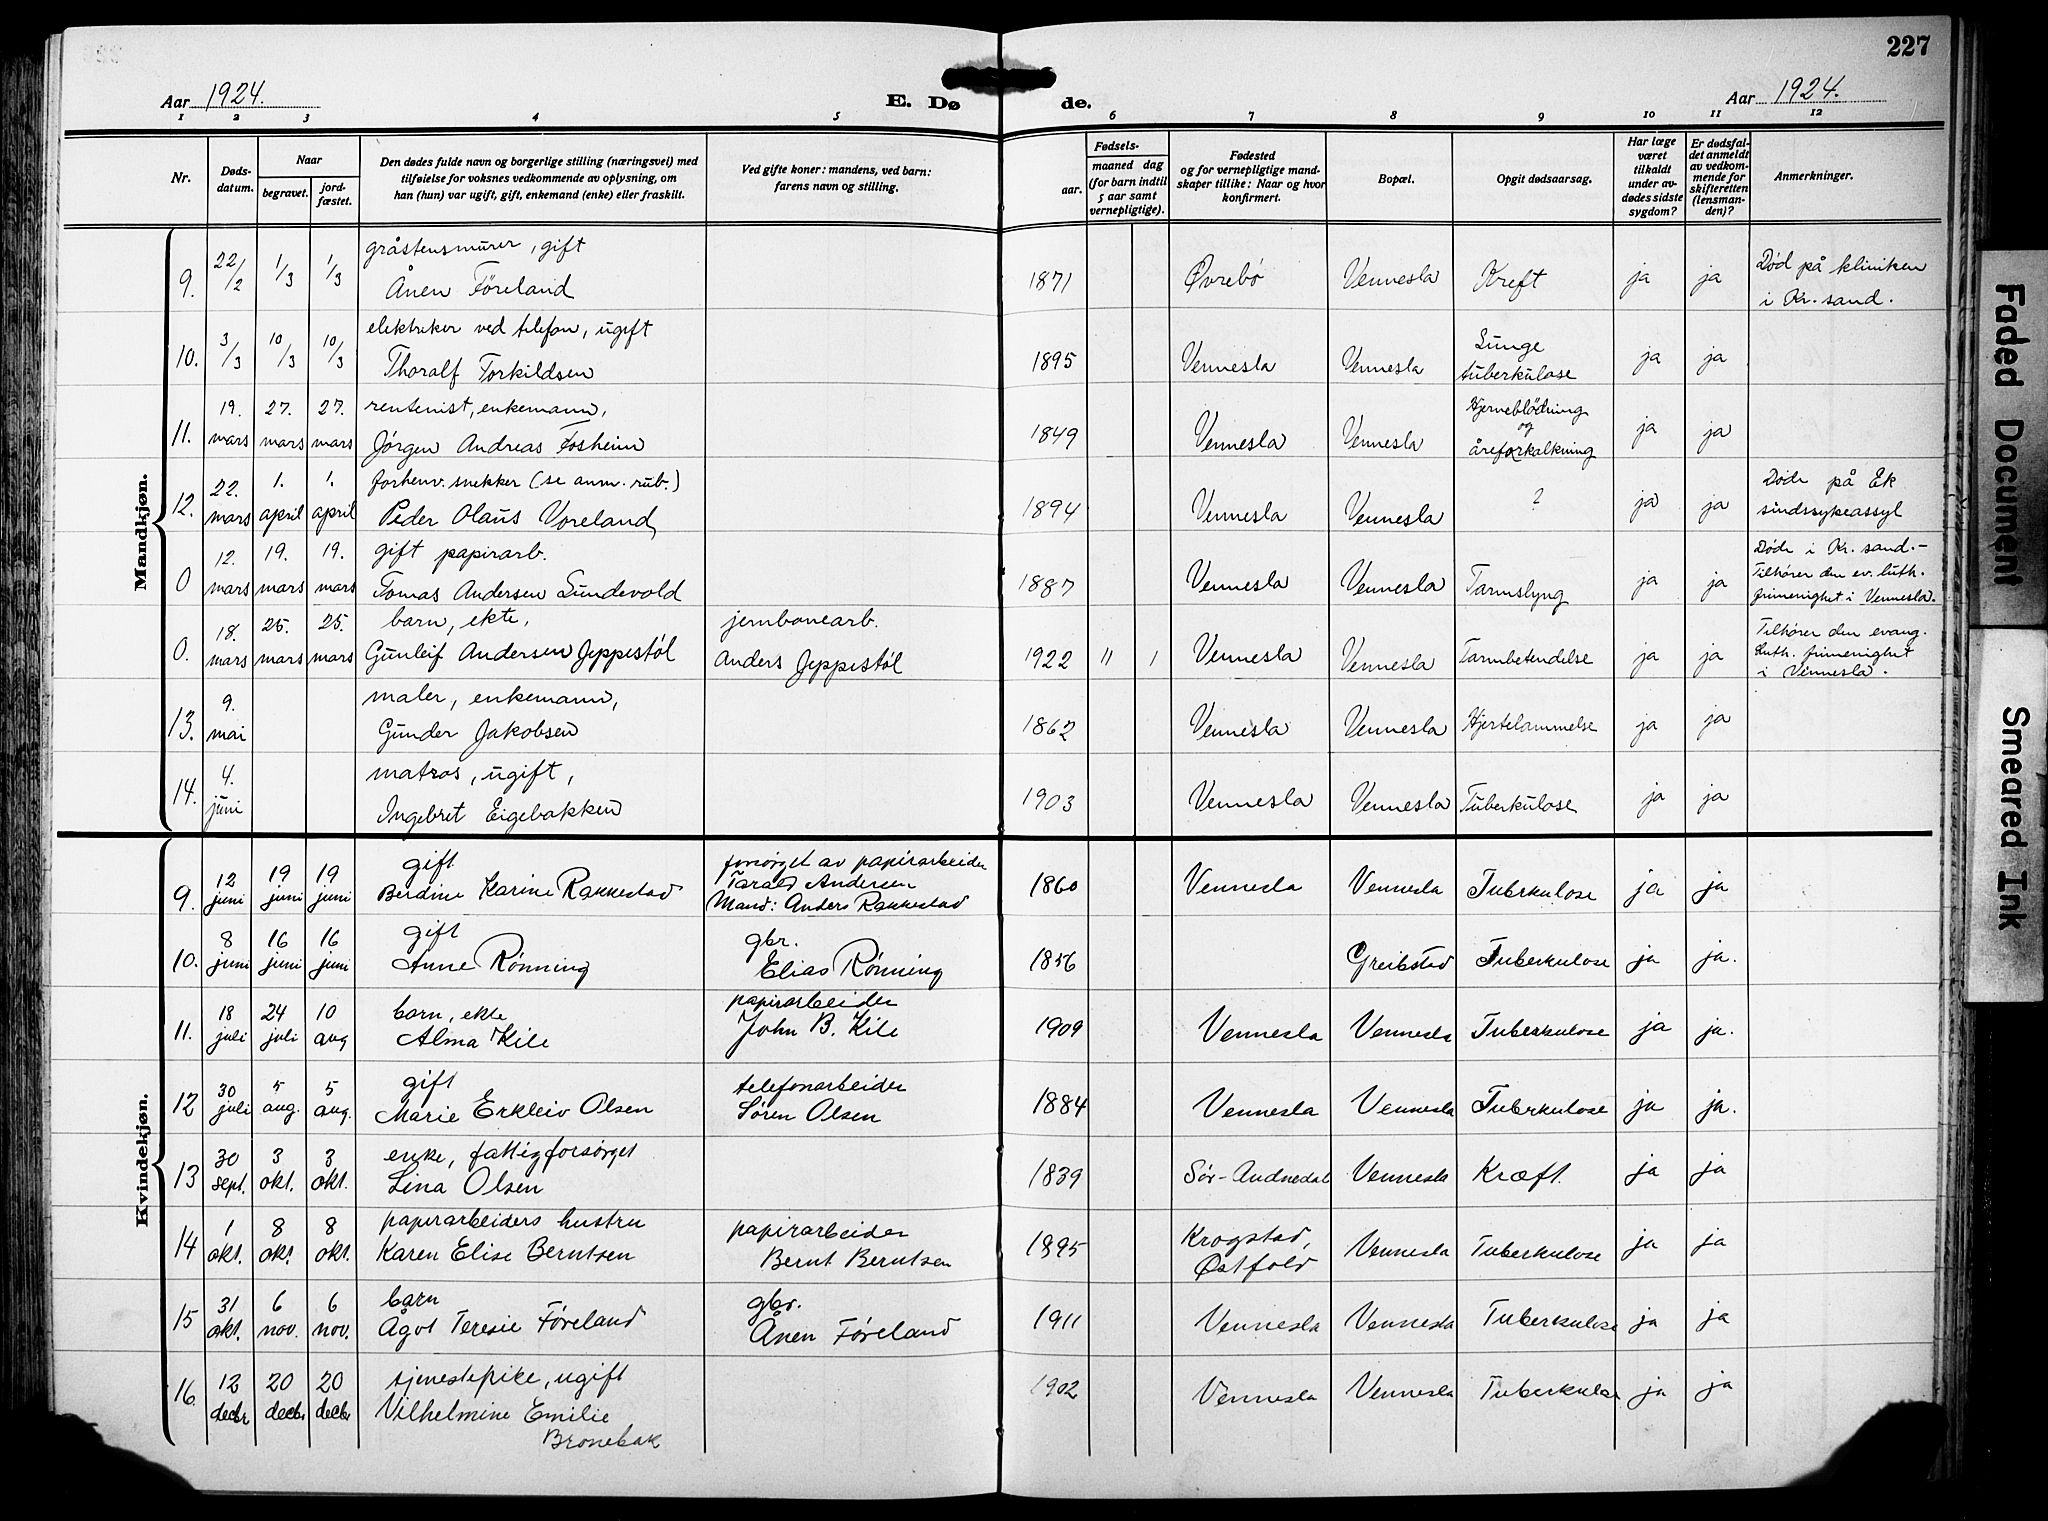 227
Aar 1924.
E. Dø de.
Aar 1924.
1 2 3 4 5 6 7 8 9 10 11 12
Nr.
Døds-
datum.
Naar
begravet.
jord-
fæstet.
Den dødes fulde navn og borgerlige stilling (næringsvei) med
tilføielse for voksnes vedkommende av oplysning, om
han (hun) var ugift, gift, enkemand (enke) eller fraskilt.
Ved gifte koner: mandens, ved barn:
farens navn og stilling.
Fødsels-
aar.
maaned dag
(for barn indtil
5 aar samt
vernepligtige).
Fødested
og for vernepligtige mand-
skaper tillike: Naar og hvor
konfirmert.
Bopæl.
Opgit dødsaarsag.
Har læge
været
tilkaldt
under av-
dødes sidste
sygdom?
Er dødsfal-
det anmeldt
av vedkom-
mende for
skifteretten
(lensman-
den)?
Anmerkninger.
Mandkjøn.
9. 22/2 1/3 1/3 gråstensmurer, gift
Ånen Föreland 1871 Øvrebö Vennesla Kreft ja ja Död på kliniken
i Kr. sand.
10. 3/3 10/3 10/3 elektriker ved telefon, ugift
Thoralf Torkildsen 1895 Vennesla Vennesla Lunge
tuberkulose ja ja
11. 19. mars 27. mars 27. mars rentenist, enkemann,
Jørgen Andreas Fosheim 1849 Vennesla Vennesla Hjerneblödning
og
åreforkalkning ja ja
12. 22. mars 1. april 1. april forhenv. snekker (se anm. rub.)
Peder Olaus Voreland, 1894 Vennesla Vennesla ? ja ja Döde på Ek
sindssykeassyl
0 12. mars 19. mars 19. mars gift papirarb.
Tomas Andersen Lundevold 1887 Vennesla Vennesla Tarmslyng ja ja Döde i Kr. sand.-
Tilhører den ev. luth.
frimenighet i Vennesla.
0. 18. mars 25. mars 25. mars barn, ekte, jernbanearb.
Gunleif Andersen Jeppestøl Anders Jeppestøl 1922 11 1 Vennesla Vennesla Tarmbetendelse ja ja Tilhører den evang.
Luth. frimenighet
i Vennesla.
13. 9. mai maler, enkemann,
Gunder Jakobsen 1862 Vennesla Vennesla Hjertelammelse ja ja
14. 4. juni matros, ugift,
Ingebret Eigebakken 1903 Vennesla Vennesla Tuberkulose ja ja
Kvindekjøn.
9. 12 juni 19 juni 19 juni gift forsörget av papirarbeider
Berdine Karine Rakkestad Tarald Andersen
Mand: Anders Rakkestad 1860 Vennesla Vennesla Tuberkulose ja ja
10. 8 juni 16 juni 16 juni gift gbr.
Anne Rönning Elias Rönning 1856 Greibstad Tuberkulose ja ja.
11. 18 juli 24 juli 10 aug barn, ekte papirarbeider
Alma Kile John B. Kile 1909 Vennesla Vennesla Tuberkulose ja ja.
12 30 juli 5 aug. 5 aug. gift telefonarbeider
Marie Erkleiv Olsen Søren Olsen 1884 Vennesla Vennesla Tuberkulose ja ja.
13 30 sept. 3 okt. 3 okt. enke, fattigforsörget
Lina Olsen 1839 Sör-Audnedal Vennesla Kræft. ja ja
14 1 okt. 8 okt. 8 okt. papirarbeiders hustru papirarbeider
Karen Elise Berntsen Bernt Berntsen 1895 Krogstad,
Østfold Vennesla Tuberkulose ja ja
15 31 okt. 6 nov. 6 nov. barn gbr.
Ågot Teresie Føreland Ånen Føreland 1911 Vennesla Vennesla Tuberkulose ja ja
16. 12 decbr 20 decbr 20 decbr tjenestepike, ugift
Vilhelmine Emilie
Bronebak 1902 Vennesla Vennesla Tuberkulose ja ja
Faded Document
Smeared Ink